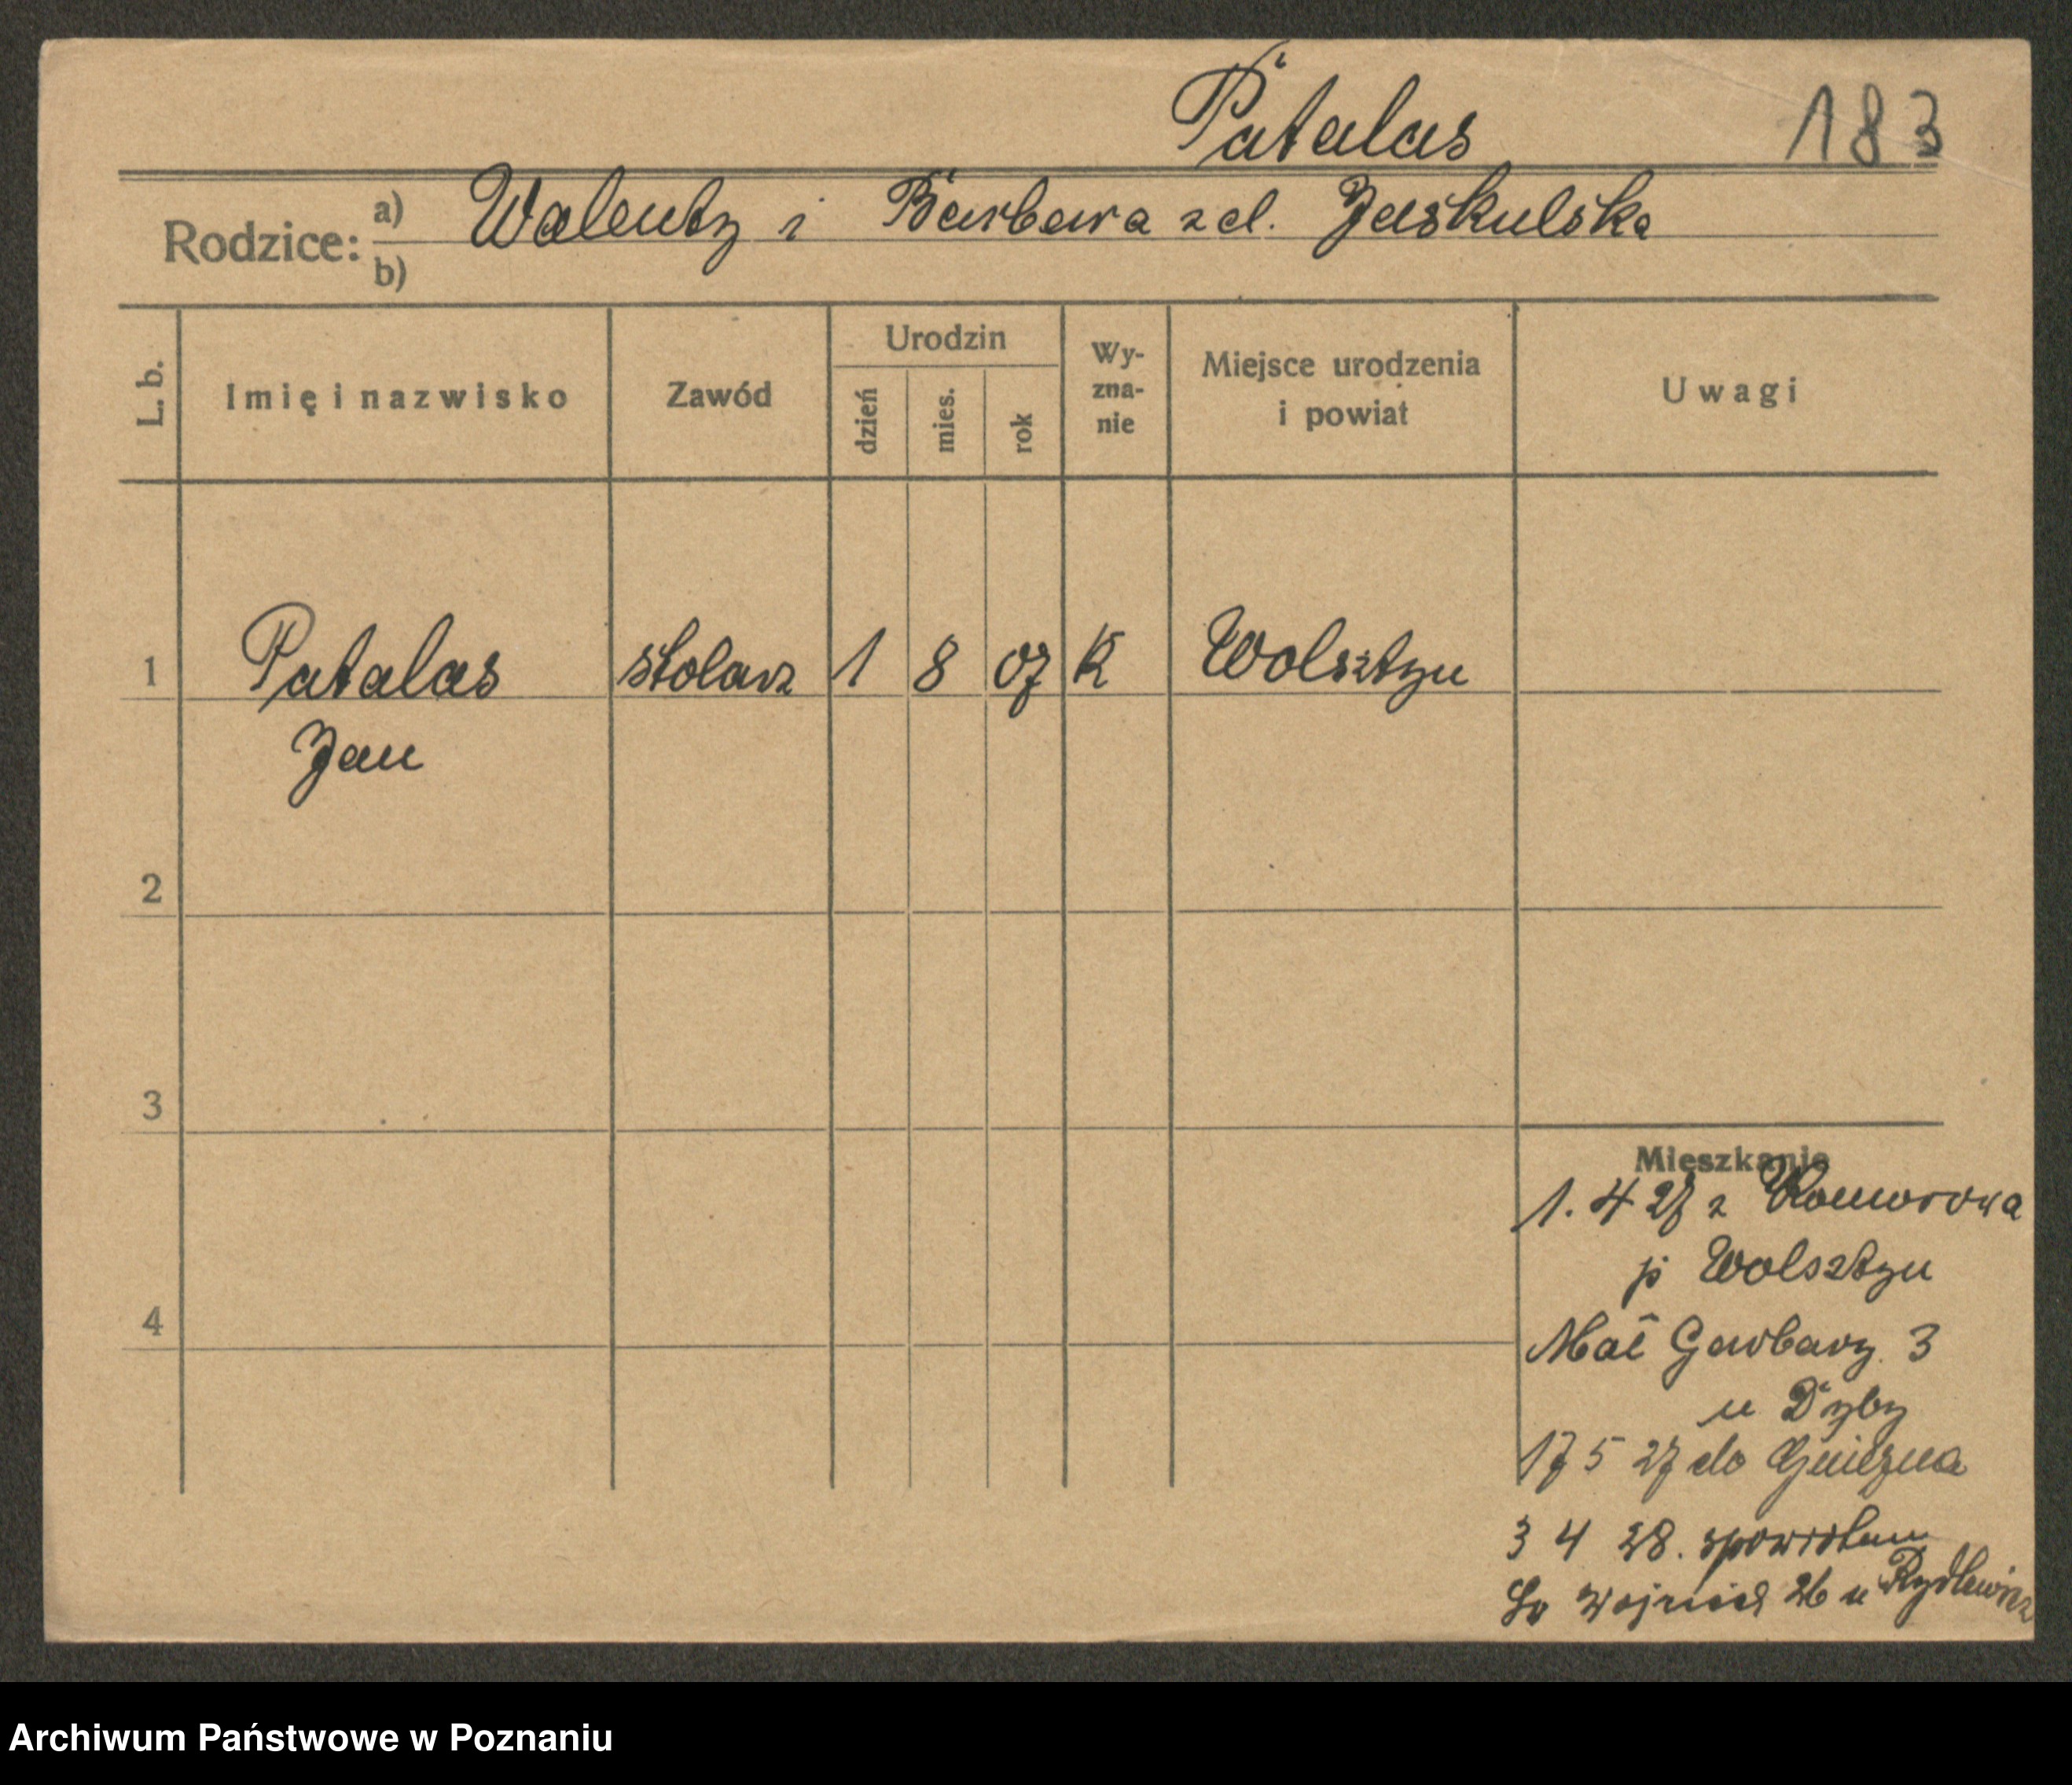 Patalas 183
Rodzice: a) Walenty i Barbara z d. Jaskulska
b)
L. b. Imię i nazwisko Zawód Urodzin dzień mies. rok Wy-
zna-
nie Miejsce urodzenia
i powiat Uwagi
1 Patalas stolarz 1 8 07 K Wolsztyn
Jan
2
3
Mieszkanie
1. 4 27 z Komorowa
p Wolsztyn
4
Małe Garbary 3
u Dyby
17 5 27 do Gniezna
3 4 28. spowrotem
Św Wojciech 26 u Rydlewicz
Archiwum Państwowe w Poznaniu